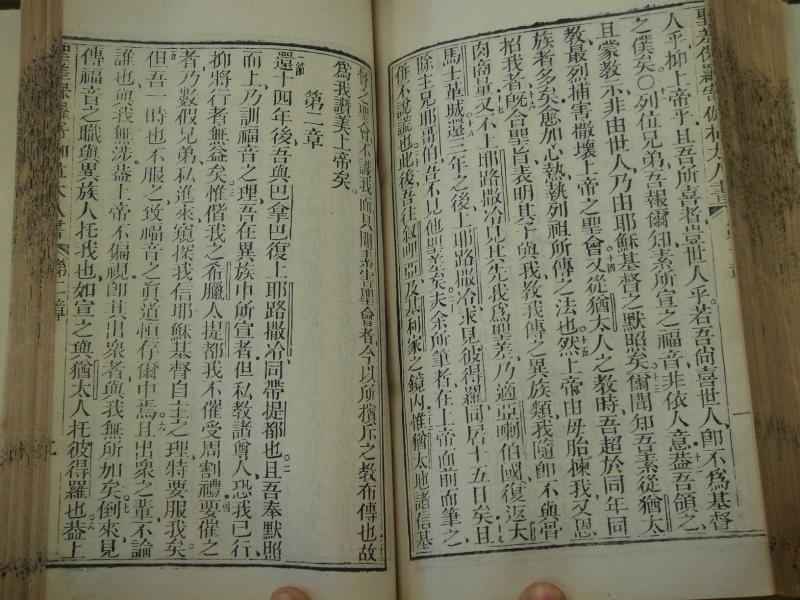 聖差保羅寄伽拉太人書
人乎抑上帝乎且吾所喜者豈世人乎若吾尚喜世人即不為基督
之僕矣○列位兄弟吾報爾知素所宣之福音非依人意葢吾領之
且蒙教示非由世人乃由耶穌基督之默照矣爾聞知吾素從猶太
教最烈捕害撒壞上帝之聖會又從猶太人之教時吾超於同年同
族者多矣愈加心熱執列祖所傳之法也然上帝由母胎揀我又恩
招我者既合聖旨表明其子與我教我傳之異族類我隨即不與骨
肉商量又不上耶路撒冷見其先我為聖差乃適亞喇伯國復返大
馬士革城還三年之後上耶路撒冷求見彼得羅同居十五日矣且
除主兄耶哥伯吾不見他聖差矣夫余所筆者在上帝面前而筆之
併不說謊也此後吾往叙哩亞及基利家之鏡內惟猶太地諸信基
督之聖會不識我面只聞素害聖會者今以所擯斥之教布傳也故
為我讚美上帝矣
第二章
一節
還十四年後吾與巴拿巴復上耶路撒冷同帶提都也且吾奉默照
而上乃訓福音之理吾在異族中所宣者但私教諸尊人恐我已行
抑將行者無益矣惟偕我之希臘人提都我不催受周割禮要催之
者乃數假兄弟私進來窺探我信耶穌基督自主之理特要服我矣
但吾一時也不服之致福音之真道恒存爾中焉且出衆之輩不論
誰也與我無涉葢上帝不偏視即其出衆者與我無所加矣倒來見
傳福音之職與異族人托我也如宣之與猶太人托彼得羅也葢上
聖差保羅寄伽拉太人書 第二章